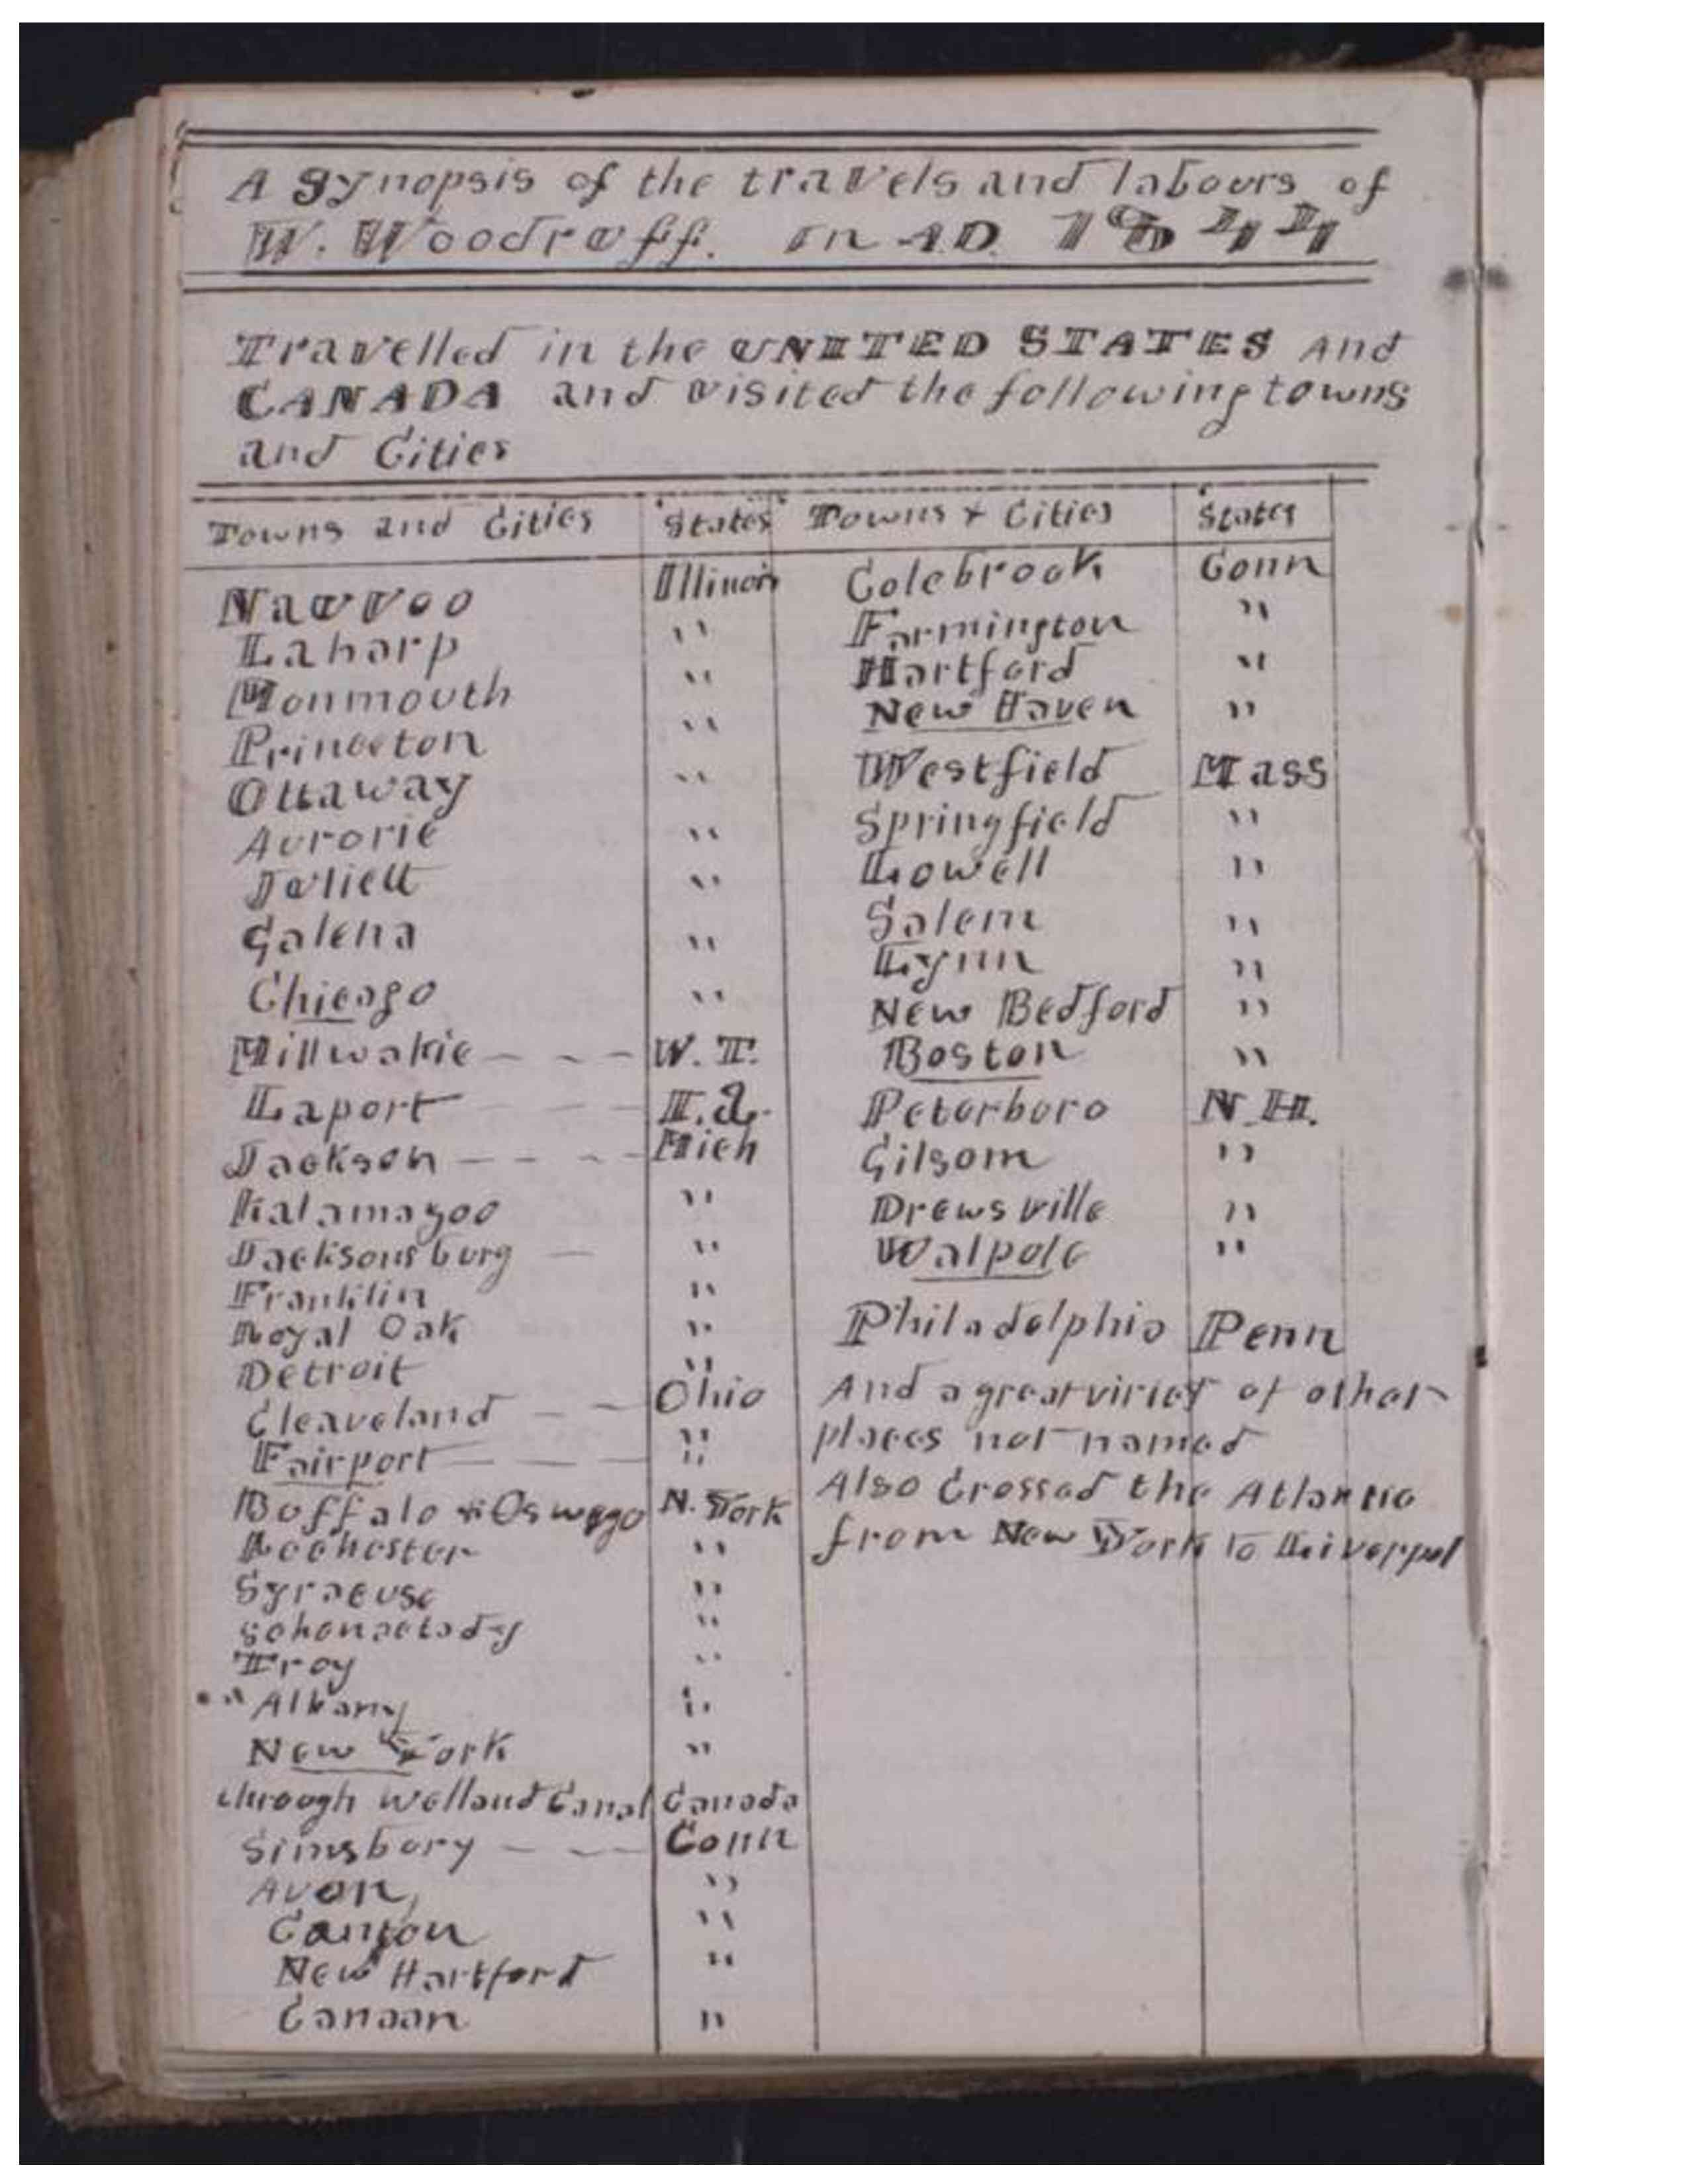 A Synopsis of the travels and labours of
W. Woodruff. in A.D. 1844
Travelled in the UNITED STATES and
CANADA and visited the following towns
and Cities
Towns and Cities States
Nauvoo Illinois
Laharp "
Monmouth "
Princeton "
Ottaway "
Aurorie "
Juliett "
Galena "
Chicago "
Millwakie - - - W. T.
Laport - - - I.a.
Jackson - - - Mich
Kalamazoo "
Jacksonsburg - "
Franklin "
Royal Oak "
Detroit "
Cleaveland - - Ohio
Fairport - - - "
Buffalo & Oswego N. York
Rochester "
Syracuse "
Schenactady "
Troy "
" Albany "
New York "
through Welland Canal Canada
Simsbury - - - Conn
Avon, "
Canton "
New Hartford "
Canaan "
Towns & Cities States
Colebrook Conn
Farmington "
Hartford "
New Haven "
Westfield Mass
Springfield "
Lowell "
Salem "
Lynn "
New Bedford "
Boston "
Peterboro N.H.
Gilsom "
Drewsville "
Walpole "
Philadelphia Penn
And a great viriety of other
places not named
Also Crossed the Atlantic
from New York to Liverpool